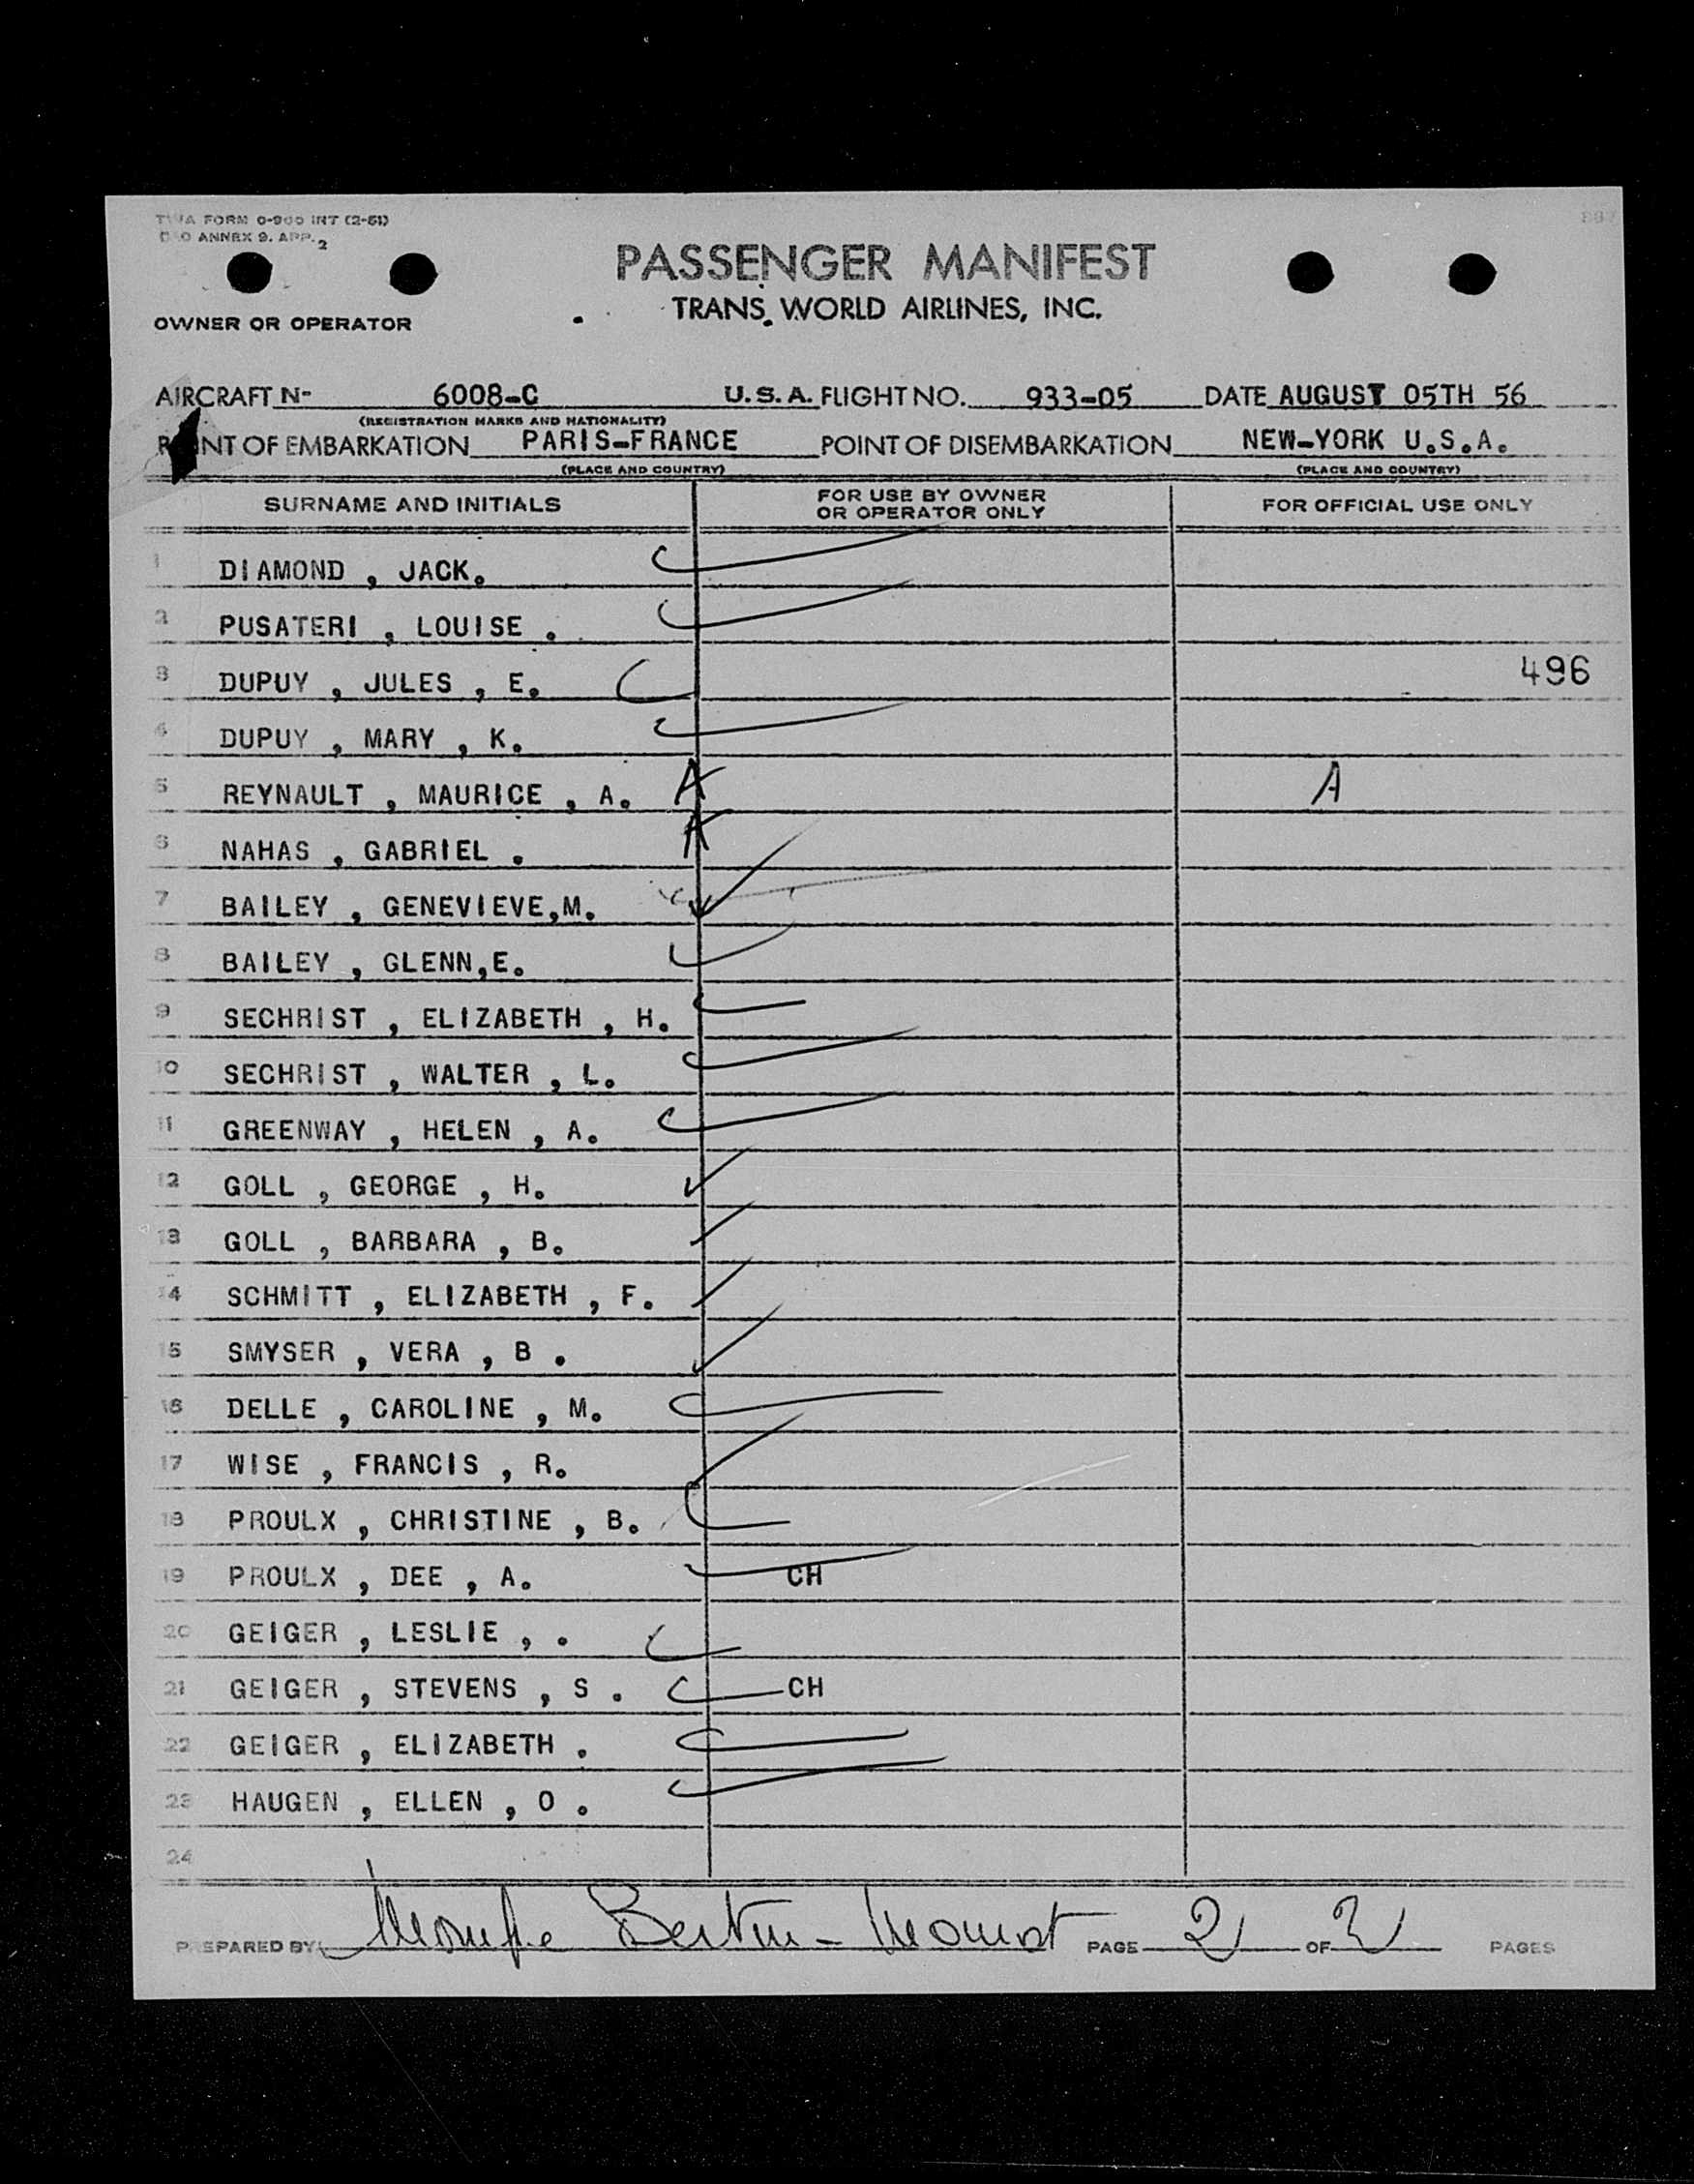 TWA FORM 0-900 INT (2-51)
ANNEX 9. APP. 2
PASSENGER MANIFEST
TRANS WORLD AIRLINES, INC.
OWNER OR OPERATOR
AIRCRAFT Nº 6008-C U.S.A. FLIGHT NO. 933-05 DATE AUGUST 05TH 56
(REGISTRATION MARKS AND NATIONALITY)
POINT OF EMBARKATION PARIS-FRANCE POINT OF DISEMBARKATION NEW-YORK U.S.A.
(PLACE AND COUNTRY) (PLACE AND COUNTRY)
SURNAME AND INITIALS FOR USE BY OWNER OR OPERATOR ONLY FOR OFFICIAL USE ONLY
1 DIAMOND , JACK.
2 PUSATERI , LOUISE .
3 DUPUY , JULES , E. 496
4 DUPUY , MARY , K.
5 REYNAULT , MAURICE , A. A A
6 NAHAS , GABRIEL . A
7 BAILEY , GENEVIEVE,M.
8 BAILEY , GLENN,E.
9 SECHRIST , ELIZABETH , H.
10 SECHRIST , WALTER , L.
11 GREENWAY , HELEN , A.
12 GOLL , GEORGE , H.
13 GOLL , BARBARA , B.
14 SCHMITT , ELIZABETH , F.
15 SMYSER , VERA , B .
16 DELLE , CAROLINE , M.
17 WISE , FRANCIS , R.
18 PROULX , CHRISTINE , B.
19 PROULX , DEE , A. CH
20 GEIGER , LESLIE , .
21 GEIGER , STEVENS , S . CH
22 GEIGER , ELIZABETH .
23 HAUGEN , ELLEN , O .
24
PREPARED BY PAGE 2 OF PAGES